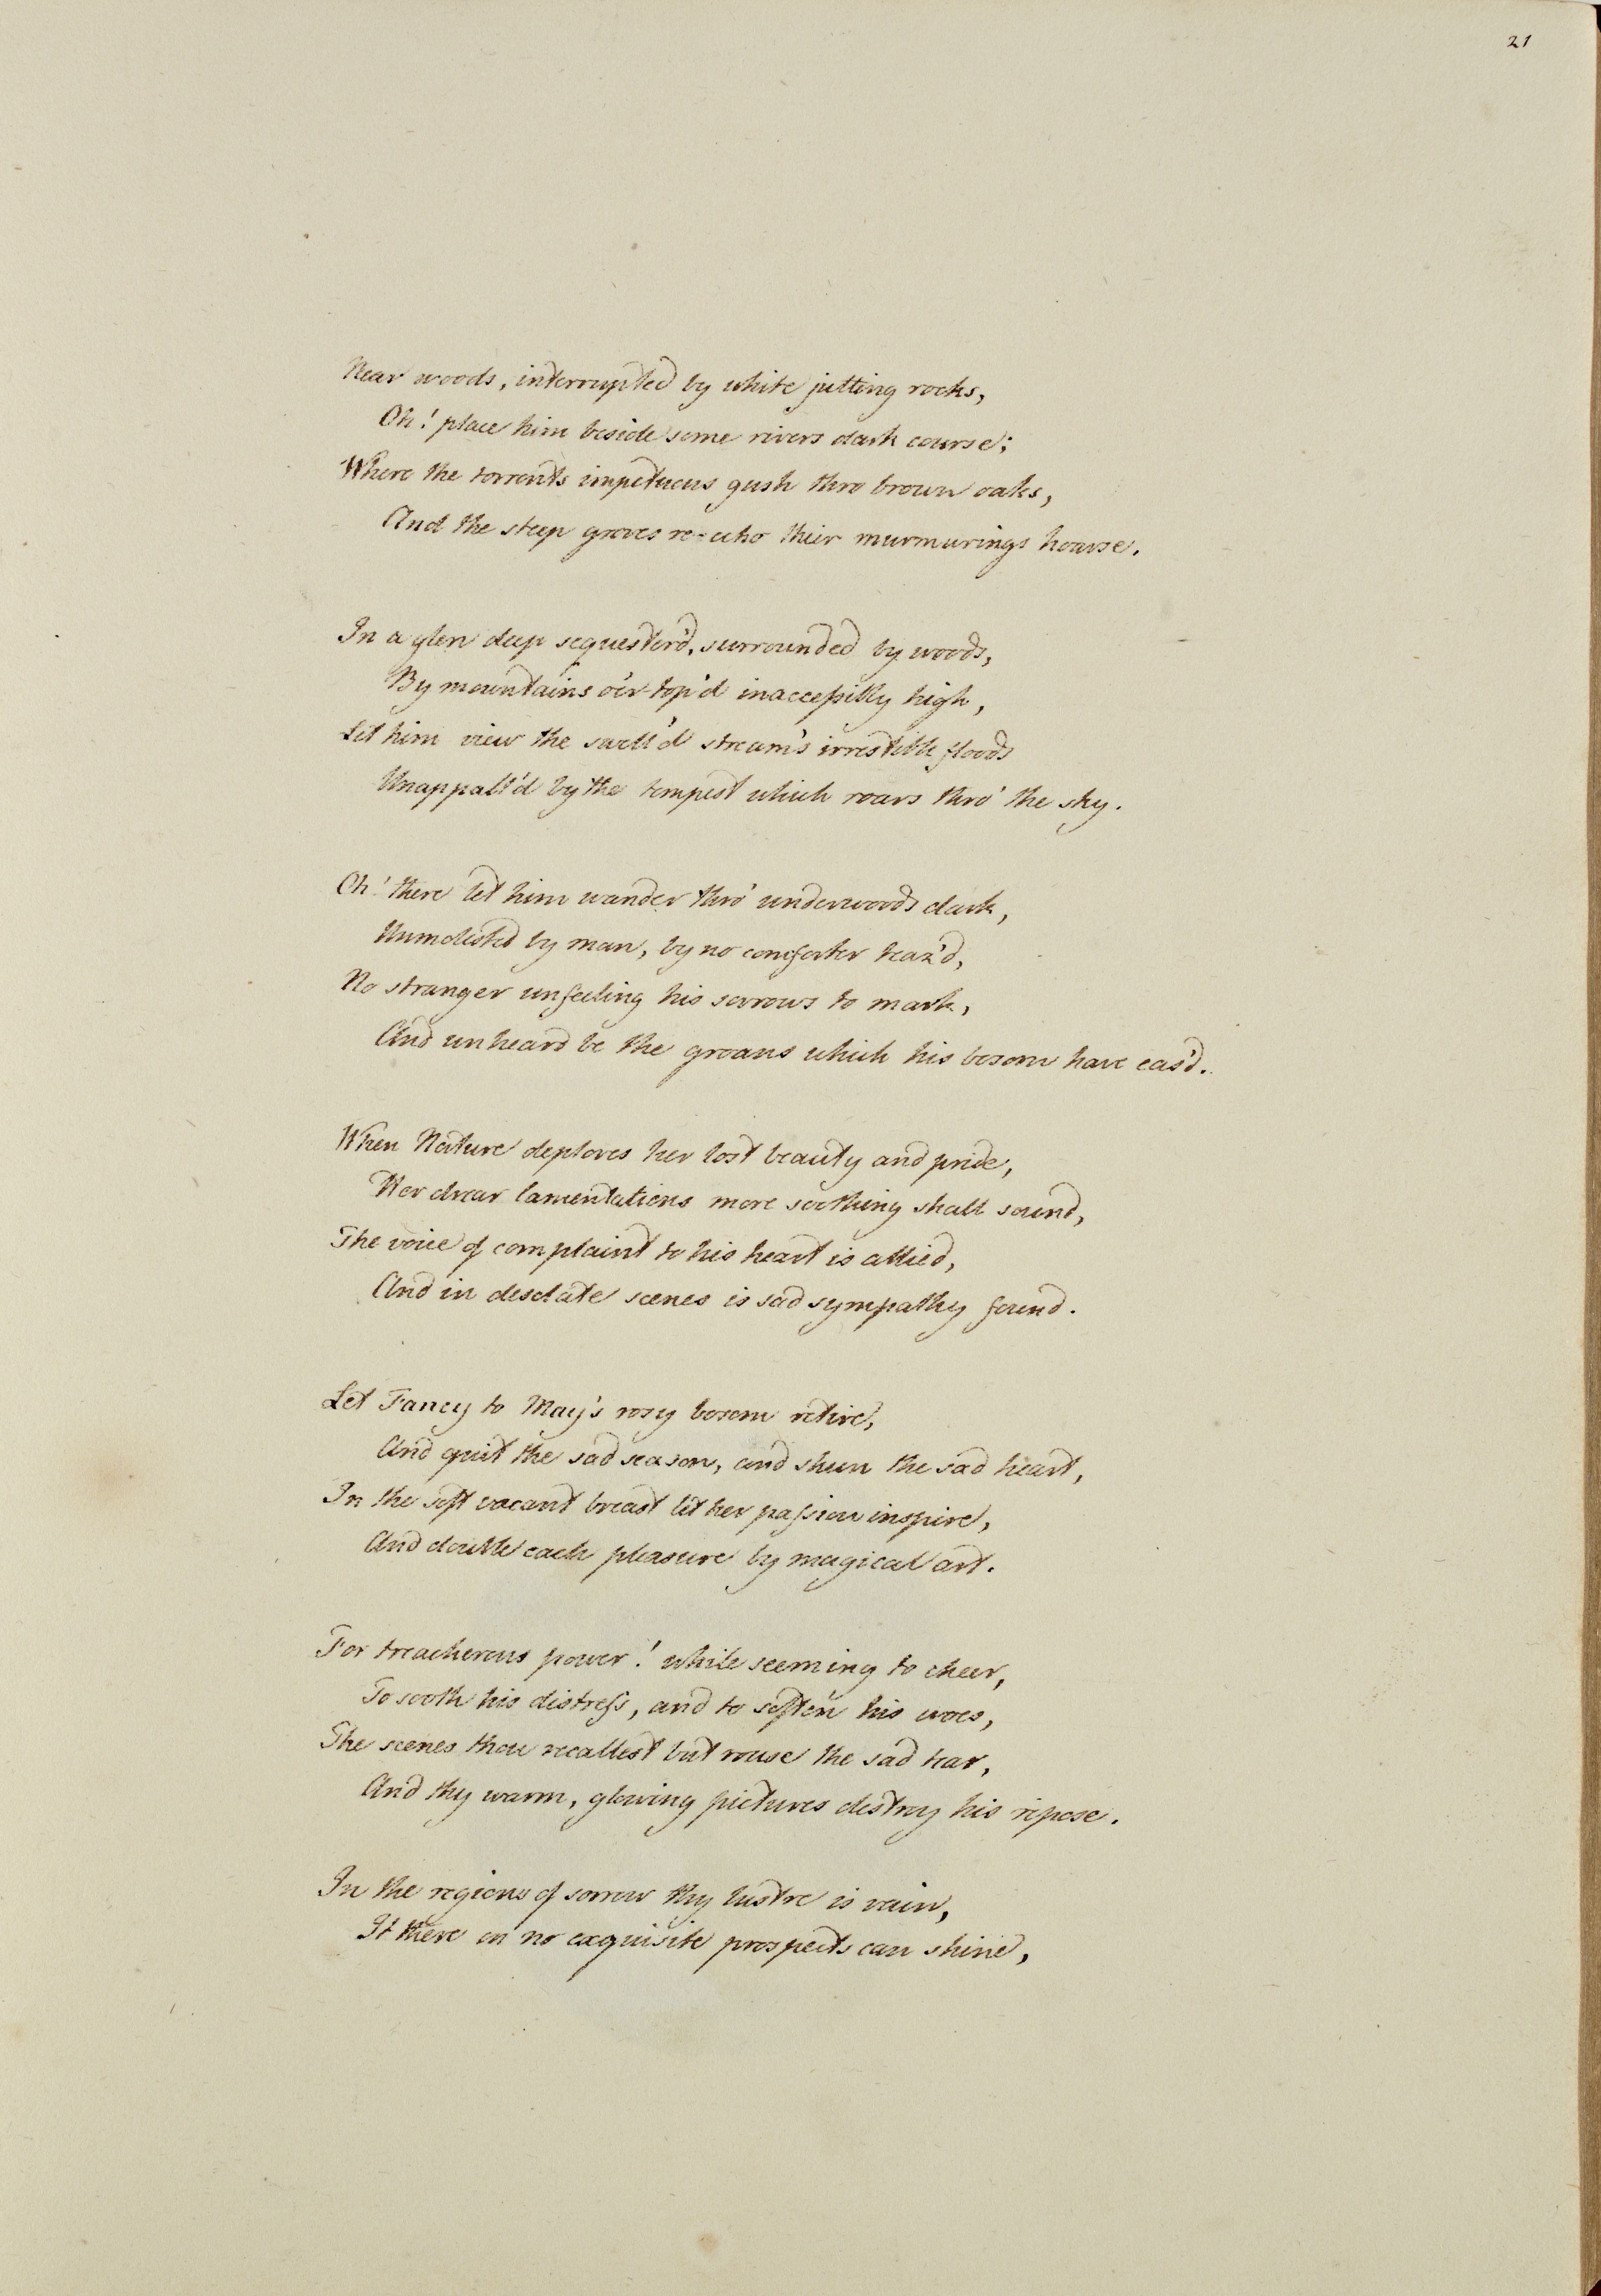 21
Near woods, interrupted by white jutting rocks,
Oh! place him beside some rivers dark course;
Where the torrents impetuous gush thro brown oaks,
And the steep groves re-echo thier murmurings hoarse.
In a glen deep sequester'd, surrounded by woods,
By mountains o'er-top'd inaccessibly high,
Let him view the swell'd stream's irrestible floods
Unappall'd by the tempest which roars thro' the sky.
Oh! there let him wander thro' underwoods dark,
Unmolested by man, by no comforter teaz'd,
No stranger unfeeling his sorrows to mark,
And unheard be the groans which his bosom have eas'd.
When Nature deplores her lost beauty and pride,
Her drear lamentations more soothing shall sound,
The voice of complaint to his heart is allied,
And in desolate scenes is sad sympathy found.
Let Fancy to May's rosy bosom retire,
And quit the sad season, and shun the sad heart,
In the soft vacant breast let her passion inspire,
And double each pleasure by magical art.
For treacherous power! while seeming to cheer,
To sooth his distress, and to soften his woes,
The scenes thou recallest but rouse the sad tear,
And thy warm, glowing pictures destroy his repose.
In the regions of sorrow thy lustre is vain,
It there on no exquisite prospects can shine,